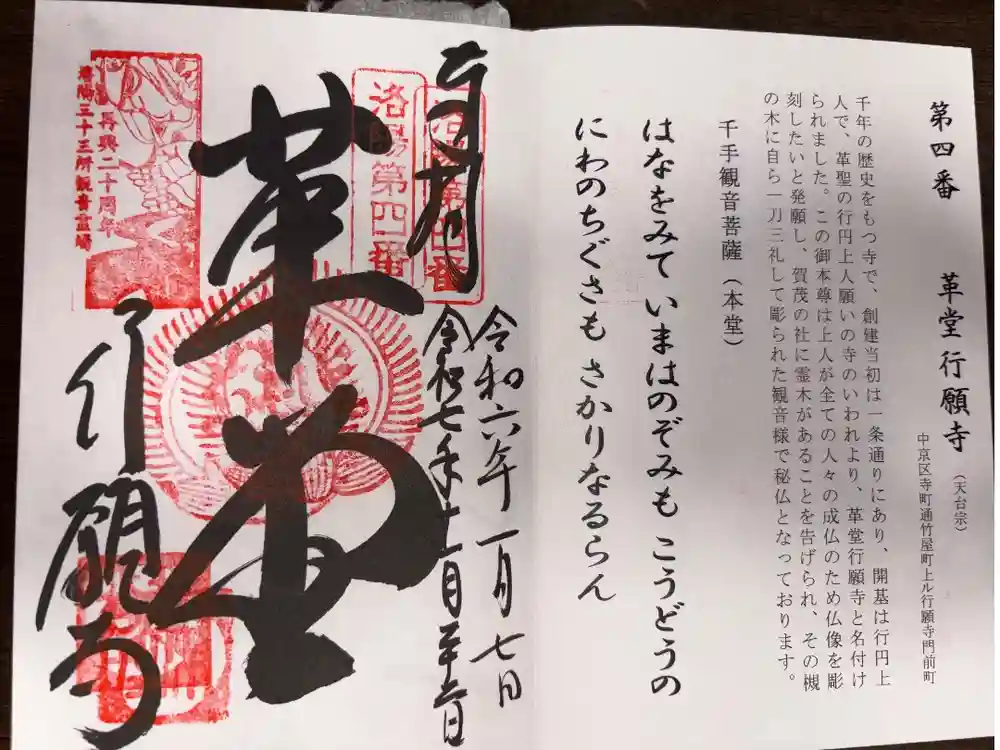 第四番 革堂行願寺(天台宗)
中京区寺町通竹屋町上ル行願寺門前町
千年の歴史をもつ寺で、創建当初は一条通りにあり、開基は行円上
人で、革聖の行円上人願いの寺のいわれより、革堂行願寺と名付け
られました。この御本尊は上人が全ての人々の成仏のため仏像を彫
刻したいと発願し、賀茂の社に霊木があることを告げられ、その槻
の木に自ら一刀三礼して彫られた観音様で秘仏となっております。
千手観音菩薩(本堂)
はなをみて いまはのぞみも こうどうの
にわのちぐさも さかりなるらん
奉拝
洛陽第四番
第四番
令和六年一月七日
令和七年十一月二十六日
革堂
行願寺
再興二十周年
洛陽三十三所観音霊場